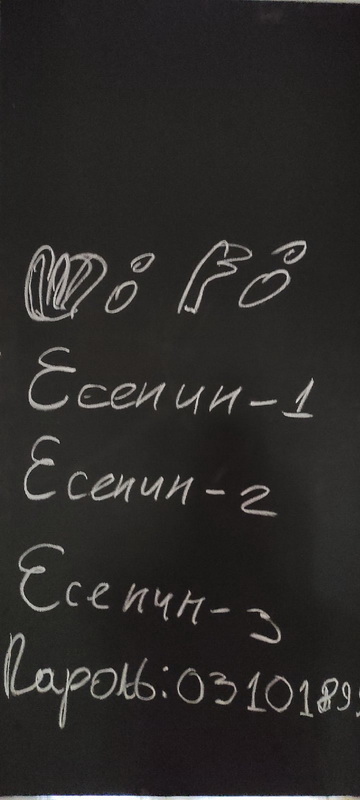 Wi Fi
Есенин-1
Есенин-2
Есенин-3
Пароль: 0310189